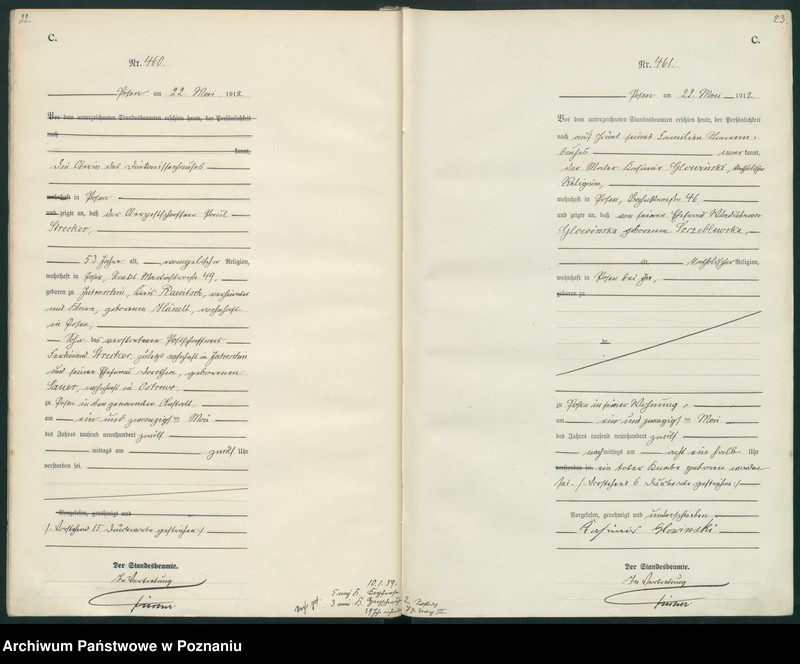 22.
C.
Nr. 460.
Posen am 22 Mai 1912
Vor dem unterzeichneten Standesbeamten erschien heute, der Persönlichkeit
nach
kannt,
Die Oberin des Diakonissenhauses
wohnhaft in Posen
und zeigte an, daß der Oberpostschaffner Paul
Strecker,
53 Jahre alt, evangelischer Religion,
wohnhaft in Posen, 49,
geboren zu Jutroschin, Kreis Rawitsch, verheiratet
mit geborenen Hänelt, wohnhaft
in Posen,
Sohn des verstorbenen Postschaffners
Ferdinand Strecker, zuletzt wohnhaft in Jutroschin
und seiner Ehefrau Dorothea, geborenen
Sauer, wohnhaft in Ostrowo,
zu Posen in der genannten Anstalt
am ein und zwanzigsten Mai
des Jahres tausend neunhundert zwölf
mittags um zwölf Uhr
verstorben sei.
Vorgelesen, genehmigt und
/: Vorstehend 15 Druckworte gestrichen :/
Der Standesbeamte.
In Vertretung
23.
C.
Nr. 461.
Posen am 22. Mai 1912
Vor dem unterzeichneten Standesbeamten erschien heute, der Persönlichkeit
nach auf Grund seines Familien Stamm-
buches aner kannt,
der Maler Kasimir Glowinski, katholischer
Religion,
wohnhaft in Posen, 46
und zeigte an, daß von seiner Ehefrau Wladislawa
Glowinska geborenen
alt, katholischer Religion,
wohnhaft in Posen bei ihm,
geboren zu
zu Posen in seiner Wohnung,
am ein und zwanzigsten Mai
des Jahres tausend neunhundert zwölf
nach mittags um acht ein halb Uhr
verstorben sei. ein toter Knabe geboren worden
sei. /: Vorstehend 6 Druckworte gestrichen :/
Vorgelesen, genehmigt und unterschrieben
Kasimir Glowinski
Der Standesbeamte.
In Vertretung
10.1.59.
Archiwum Państwowe w Poznaniu